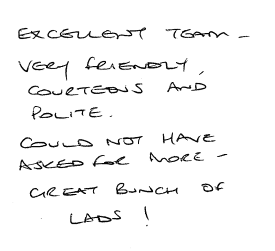 EXCELLENT TEAM -
VERY FRIENDLY,
COURTEOUS AND
POLITE.
COULD NOT HAVE
ASKED FOR MORE -
GREAT BUNCH OF
LADS !